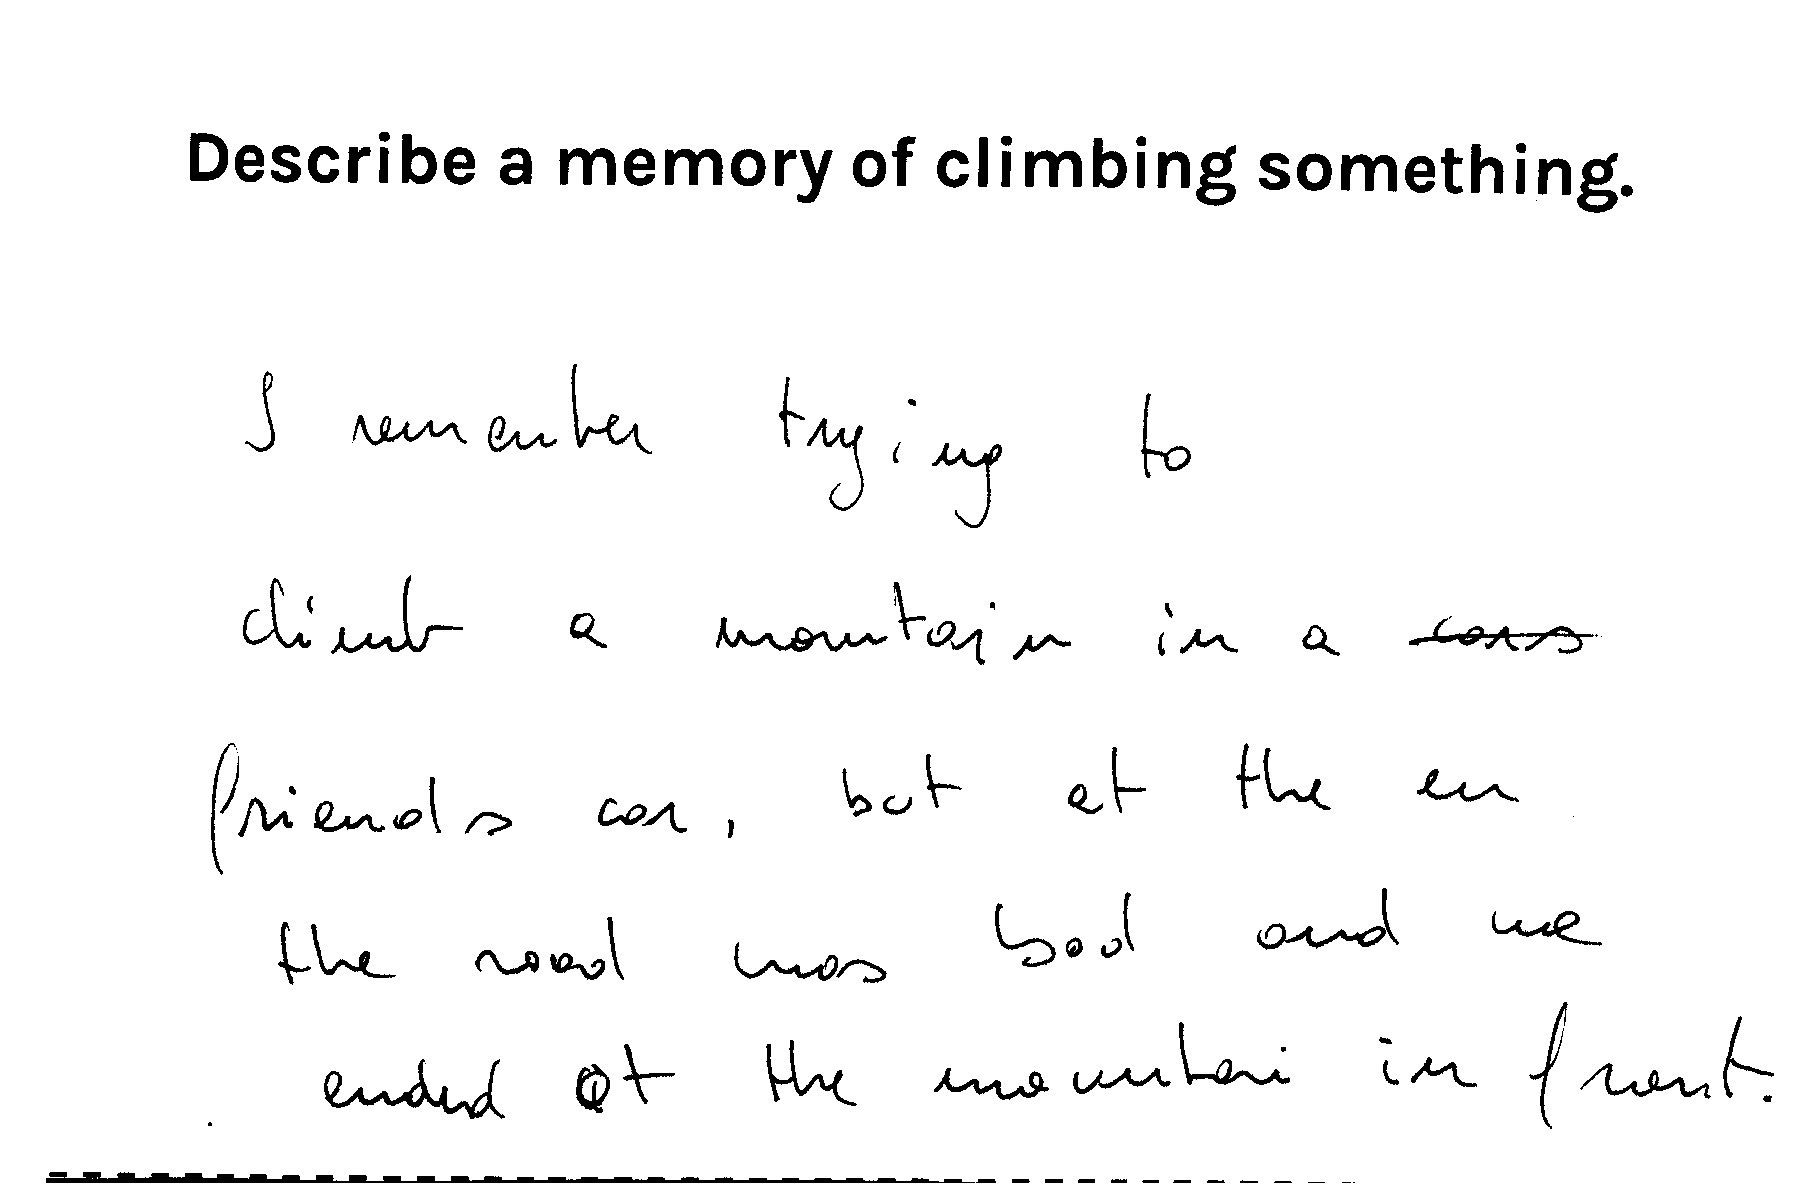 Describe a memory of climbing something.
I remember trying to
climb a mountain in a cars
friends car, but at the en
the road was bad and we
ended at the mountai in front.